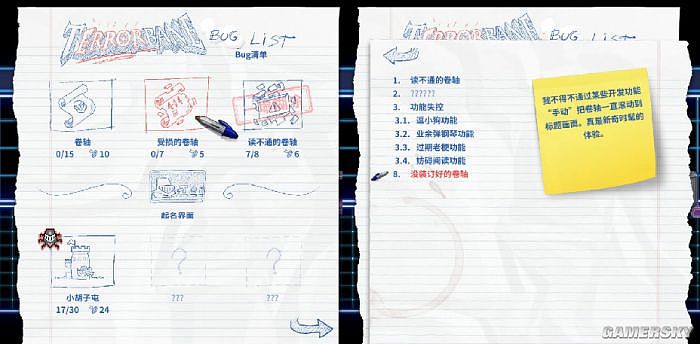 TERRORBANE BUG LIST
Bug清单
卷轴
0/15 10
受损的卷轴
0/7 5
读不通的卷轴
7/8 6
起名界面
?
?
小胡子屯
17/30 24
???
???
1. 读不通的卷轴
2. ??????
3. 功能失控
3.1. 逗小狗功能
3.2. 业余弹钢琴功能
3.3. 过期老梗功能
3.4. 妨碍阅读功能
8. 没装订好的卷轴
我不得不通过某些开发功能
“手动”把卷轴一直滚动到
标题画面。真是新奇时髦的
体验。
GAMERSKY